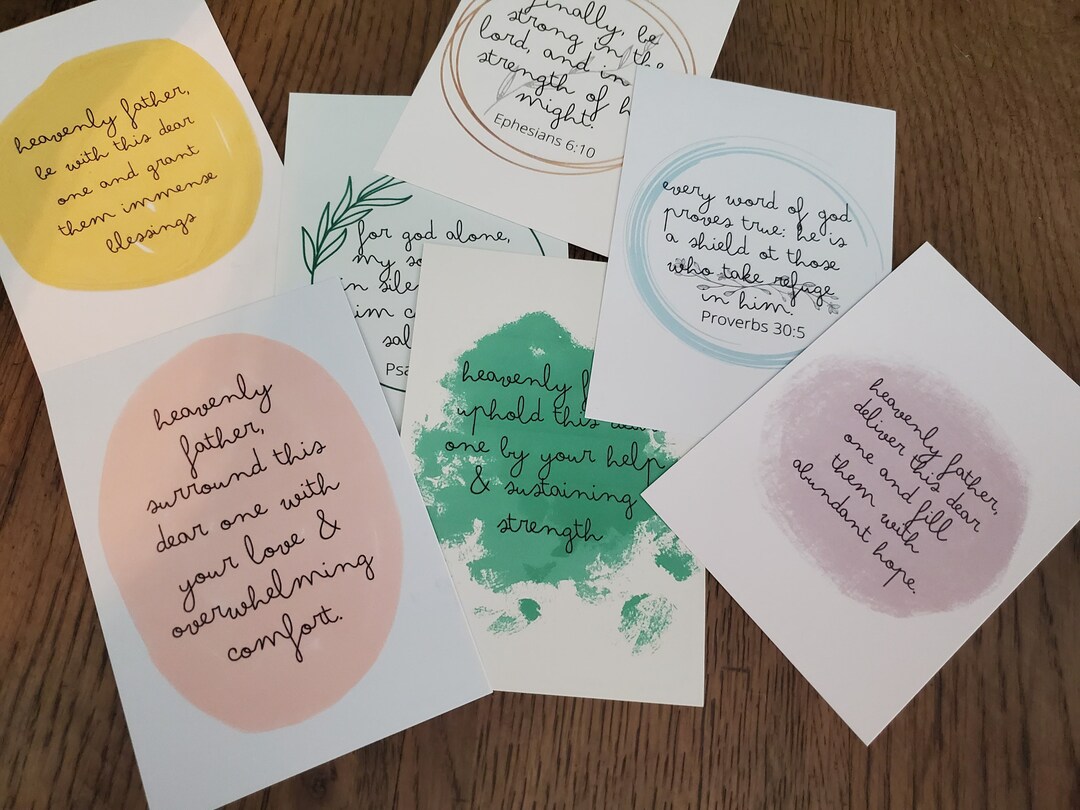 heavenly father,
be with this dear
one and grant
them immense
blessings
finally, be
strong in the
lord, and in
strength of
might.
Ephesians 6:10
for god alone,
my
in
every word of god
proves true: he is
a shield ot those
who take refuge
in him.
Proverbs 30:5
heavenly
father,
surround this
dear one with
your love &
overwhelming
comfort.
heavenly
uphold this
one by your help
& sustaining
strength
heavenly father,
deliver this dear
one and fill
them with
abundant hope.